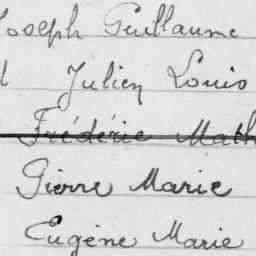 Joseph Guillaume
Julien Louis
Frédéric Math
Pierre Marie
Eugène Marie